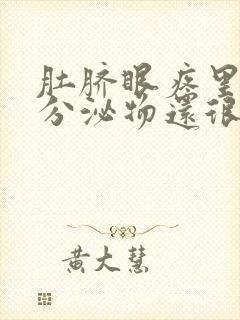 肚脐眼疼里
分泌物還很
黄大慧